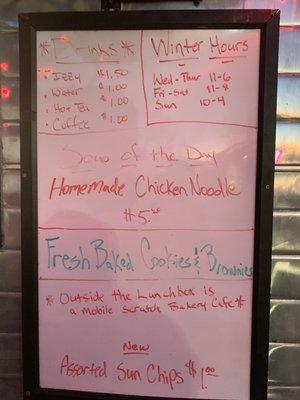 * Drinks *
* Izzy $1.50
* Water $1.00
* Hot Tea $1.00
* Coffee $1.00
Winter Hours
Wed-Thur 11-6
Fri-Sat 11-8
Sun 10-4
Soup of the Day
Homemade Chicken Noodle
$5.
Fresh Baked Cookies & Brownies
* Outside the Lunchbox is
a mobile scratch Bakery Cafe *
New
Assorted Sun Chips $1.00